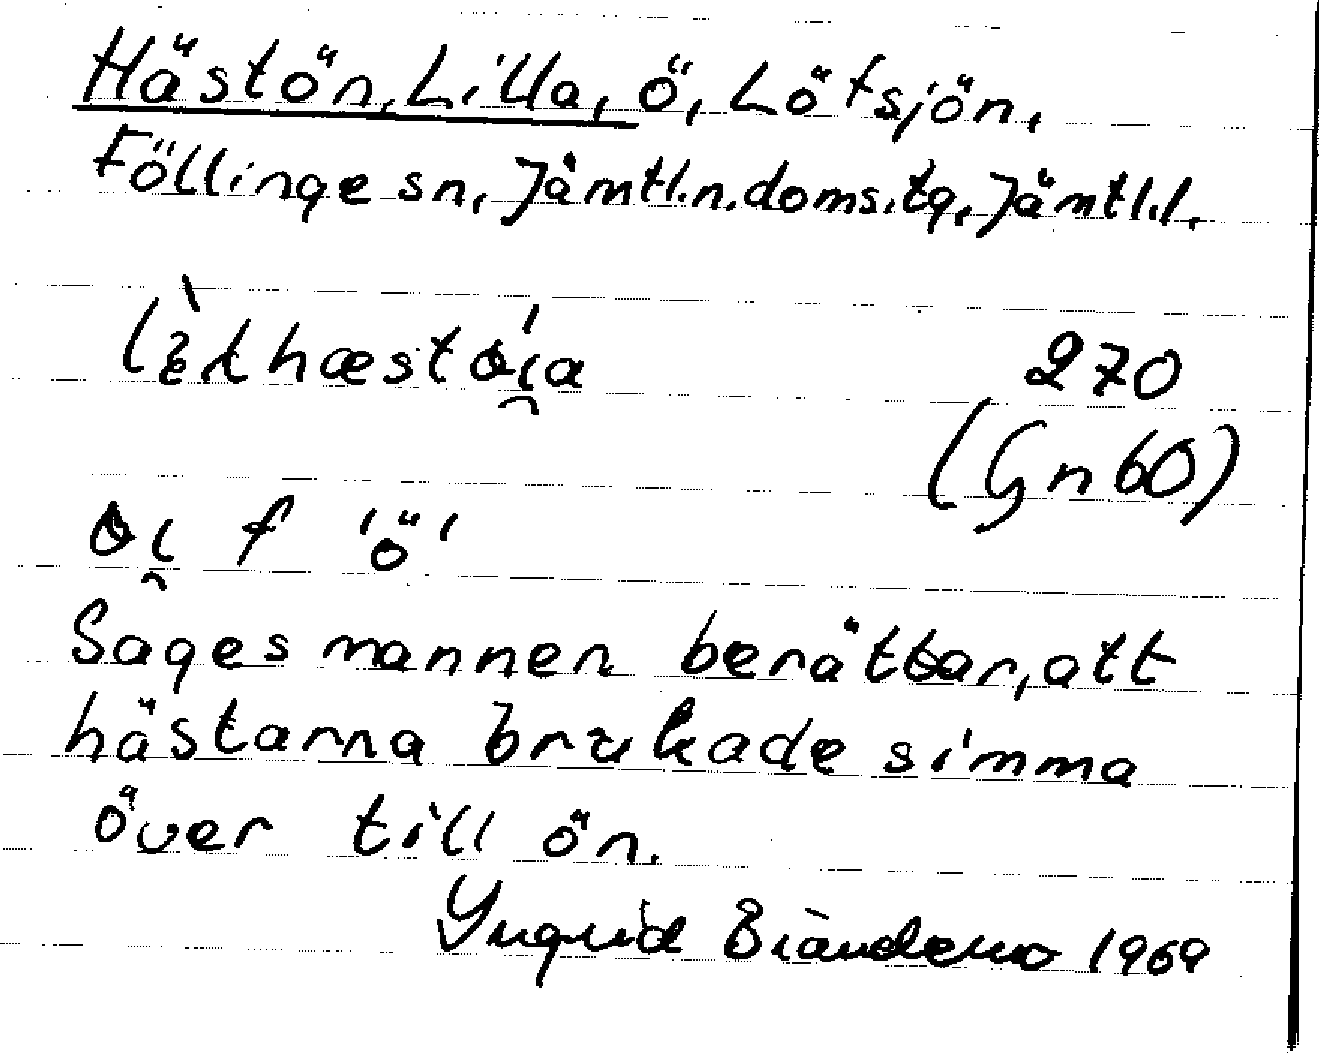 Hästön, Lilla, ö, Lötsjön,
Föllinge sn, Jämtl.n.doms.tg, Jämtl.l.
270
(Gn 60)
f 'ö'
Sagesmannen berättar, att
hästarna brukade simma
över till ön.
Yngrid Biandemo 1969